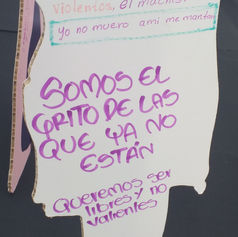 violentos, el machis
yo no muero ami me matan
SOMOS EL
GRITO DE LAS
QUE YA NO
ESTÁN
Queremos ser
libres y no
valientes